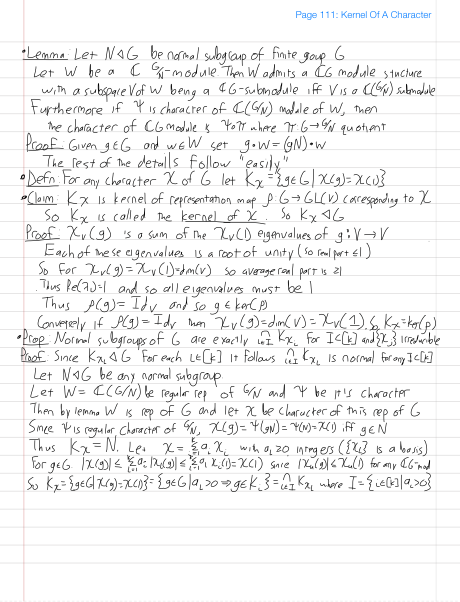 Page 111: Kernel Of A Character
• Lemma: Let N ◁ G be normal subgroup of finite group G
Let W be a ℂ G/N-module Then W admits a ℂG module structure
with a subspace V of W being a ℂG-submodule iff V is a ℂ(G/N) submodule
Furthermore if Ψ is character of ℂ(G/N) module of W, then
the character of ℂG module is Ψ∘π where π: G→G/N quotient
Proof: Given g∈G and w∈W set g•w = (gN)•w
The rest of the details follow "easily"
• Defn: For any character χ of G let K_χ = {g∈G | χ(g)=χ(1)}
• Claim: K_χ is kernel of representation map ρ: G→GL(V) corresponding to χ
So K_χ is called the kernel of χ. So K_χ ◁ G
Proof: χ_V(g) is a sum of the χ_V(1) eigenvalues of g: V→V
Each of these eigenvalues is a root of unity (so real part ≤1)
So for χ_V(g) = χ_V(1) = dim(V) so average real part is 1
Thus Re(λ_i)=1 and so all eigenvalues must be 1
Thus ρ(g) = Id_V and so g∈ker(ρ)
Conversely if ρ(g) = Id_V then χ_V(g) = dim(V) = χ_V(1). So K_χ = ker(ρ)
• Prop: Normal subgroups of G are exactly ∩_{i∈I} K_{χ_i} for I⊂[k] and {χ_i} irreducible
Proof: Since K_{χ_i} ◁ G for each i∈[k] it follows ∩_{i∈I} K_{χ_i} is normal for any I⊂[k]
Let N ◁ G be any normal subgroup.
Let W = ℂ(G/N) be regular rep of G/N and Ψ be it's character
Then by lemma W is rep of G and let χ be character of this rep of G
Since Ψ is regular character of G/N, χ(g) = Ψ(gN) = Ψ(N) = χ(1) iff g∈N
Thus K_χ = N. Let χ = Σ_{i=1}^k a_i χ_i with a_i ≥ 0 integers ({χ_i} is a basis)
For g∈G |χ(g)| ≤ Σ_{i=1}^k a_i |χ_i(g)| ≤ Σ_{i=1}^k a_i χ_i(1) = χ(1) since |χ_u(g)| ≤ χ_u(1) for any ℂG-mod
So K_χ = {g∈G | χ(g)=χ(1)} = {g∈G | a_i>0 ⇒ g∈K_i} = ∩_{i∈I} K_{χ_i} where I = {i∈[k] | a_i>0}